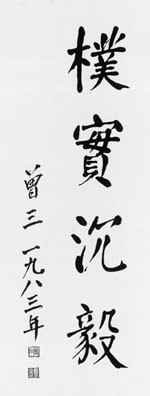 樸實沉毅
曾三 一九八三年